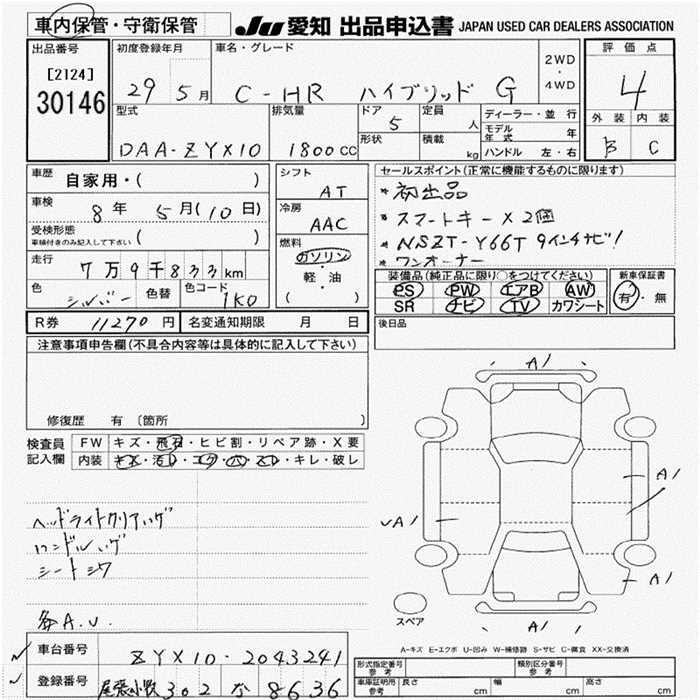 車内保管・守衛保管 JU 愛知 出品申込書 JAPAN USED CAR DEALERS ASSOCIATION
出品番号 初度登録年月 車名・グレード 2WD・4WD 評価点
[2124] 29 5月 C-HR ハイブリッド G 4
30146 型式 排気量 ドア 定員 ディーラー・並行 外装 内装
5 人 モデル年式 年
DAA-ZYX10 1800cc 形状 積載 kg ハンドル 左・右 B C
車歴 自家用・( ) シフト AT セールスポイント(正常に機能するものに限ります)
車検 8年 5月(10日) 冷房 AAC * 初出品
受検形態 ( ) * スマートキー×2個
車検付きのみ記入して下さい 燃料 * NSZT-Y66T 9インチナビ!
走行 7万9千833km ガソリン・軽・油 * ワンオーナー
( ) 装備品(純正品に限り○をつけてください) 新車保証書
色 シルバー 色替 色コード 1K0 PS PW エアB AW 有・無
SR ナビ TV カワシート
R券 11270円 名変通知期限 月 日 後日品
注意事項申告欄(不具合内容等は具体的に記入して下さい)
修復歴 有 〔箇所
検査員記入欄 FW キズ・飛石・ヒビ割・リペア跡・X要
内装 キズ・汚レ・コゲ・穴・スレ・キレ・破レ
A1
A1
A1
A1
A1
ヘッドライトクリアハゲ
ハンドルハゲ
シートシワ
各A.U.
スペア
A-キズ E-エクボ U-凹み W-補修跡 S-サビ C-腐食 XX-交換済
車台番号 ZYX10-2043241 形式指定番号 参考 類別区分番号 参考
登録番号 尾張小牧 302 な 8636 車庫証明用 参考 長さ cm 幅 cm 高さ cm